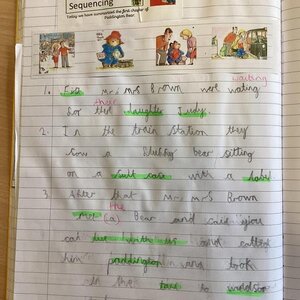 Sequencing
Today we have summarised the first chapter of
Paddington Bear.
waiting
1. Mr Mrs Brown were wating
their
for ther daughte Judy.
2. In the train station they
saw a bear sitting
on a suit case with a label
3. After that Mr Mrs Brown
the
met (a) Bear and said you
can live with us and called
him paddington and took
in the taxi to windsor